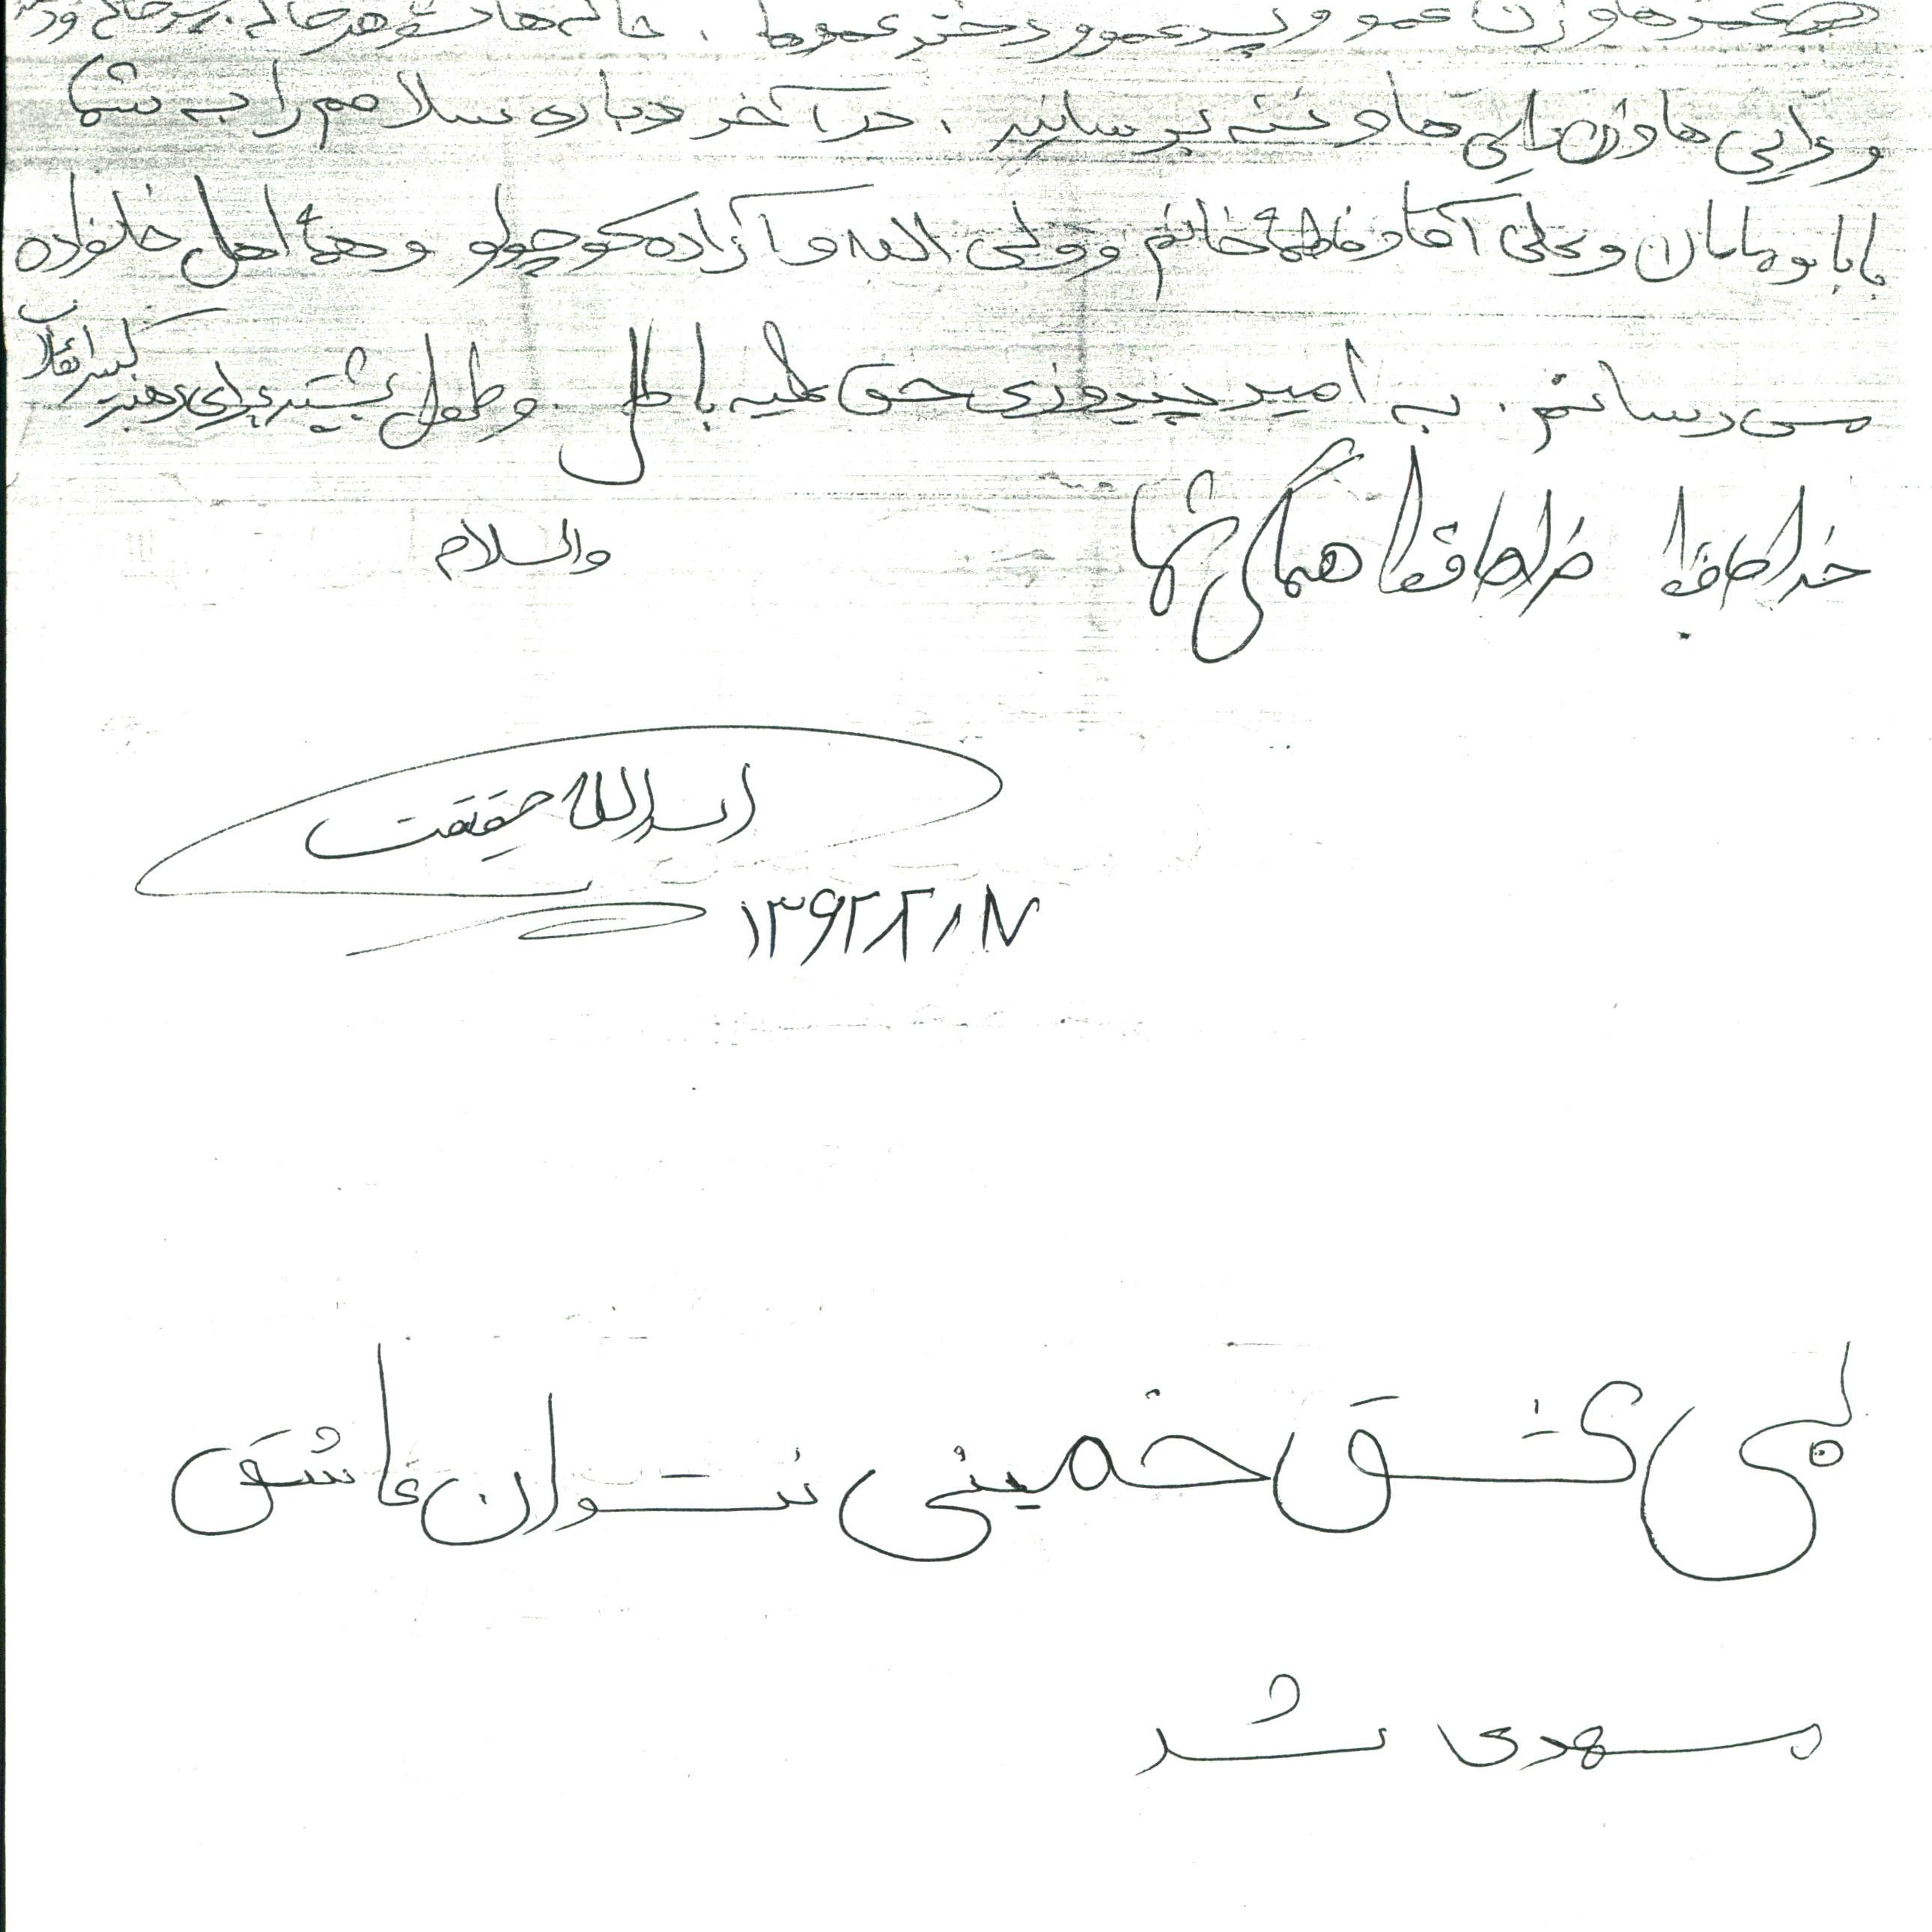 عموها و زن عمو و پسر عمو و دختر عموها ، خاله ها شوهر خاله ، پسر خاله و
و دایی ها و زن دایی ها و ننه برسانید ، در آخر دباره سلامم را به شما
بابا و مامان و علی آقا و فاطمه خانم و ولی الله و آزاده کوچولو و همهٔ اهل خانواده
می رسانم . به امید پیروزی حق علیه باطل . و طول بیشتر برای رهبر
کبیر انقلاب
خداحافظ خداحافظ همگی شما
والسلام
اسدالله حقیقت
۱۳۶۲/۲/۱۷
بی عشق خمینی نتوان عاشق
مهدی شد